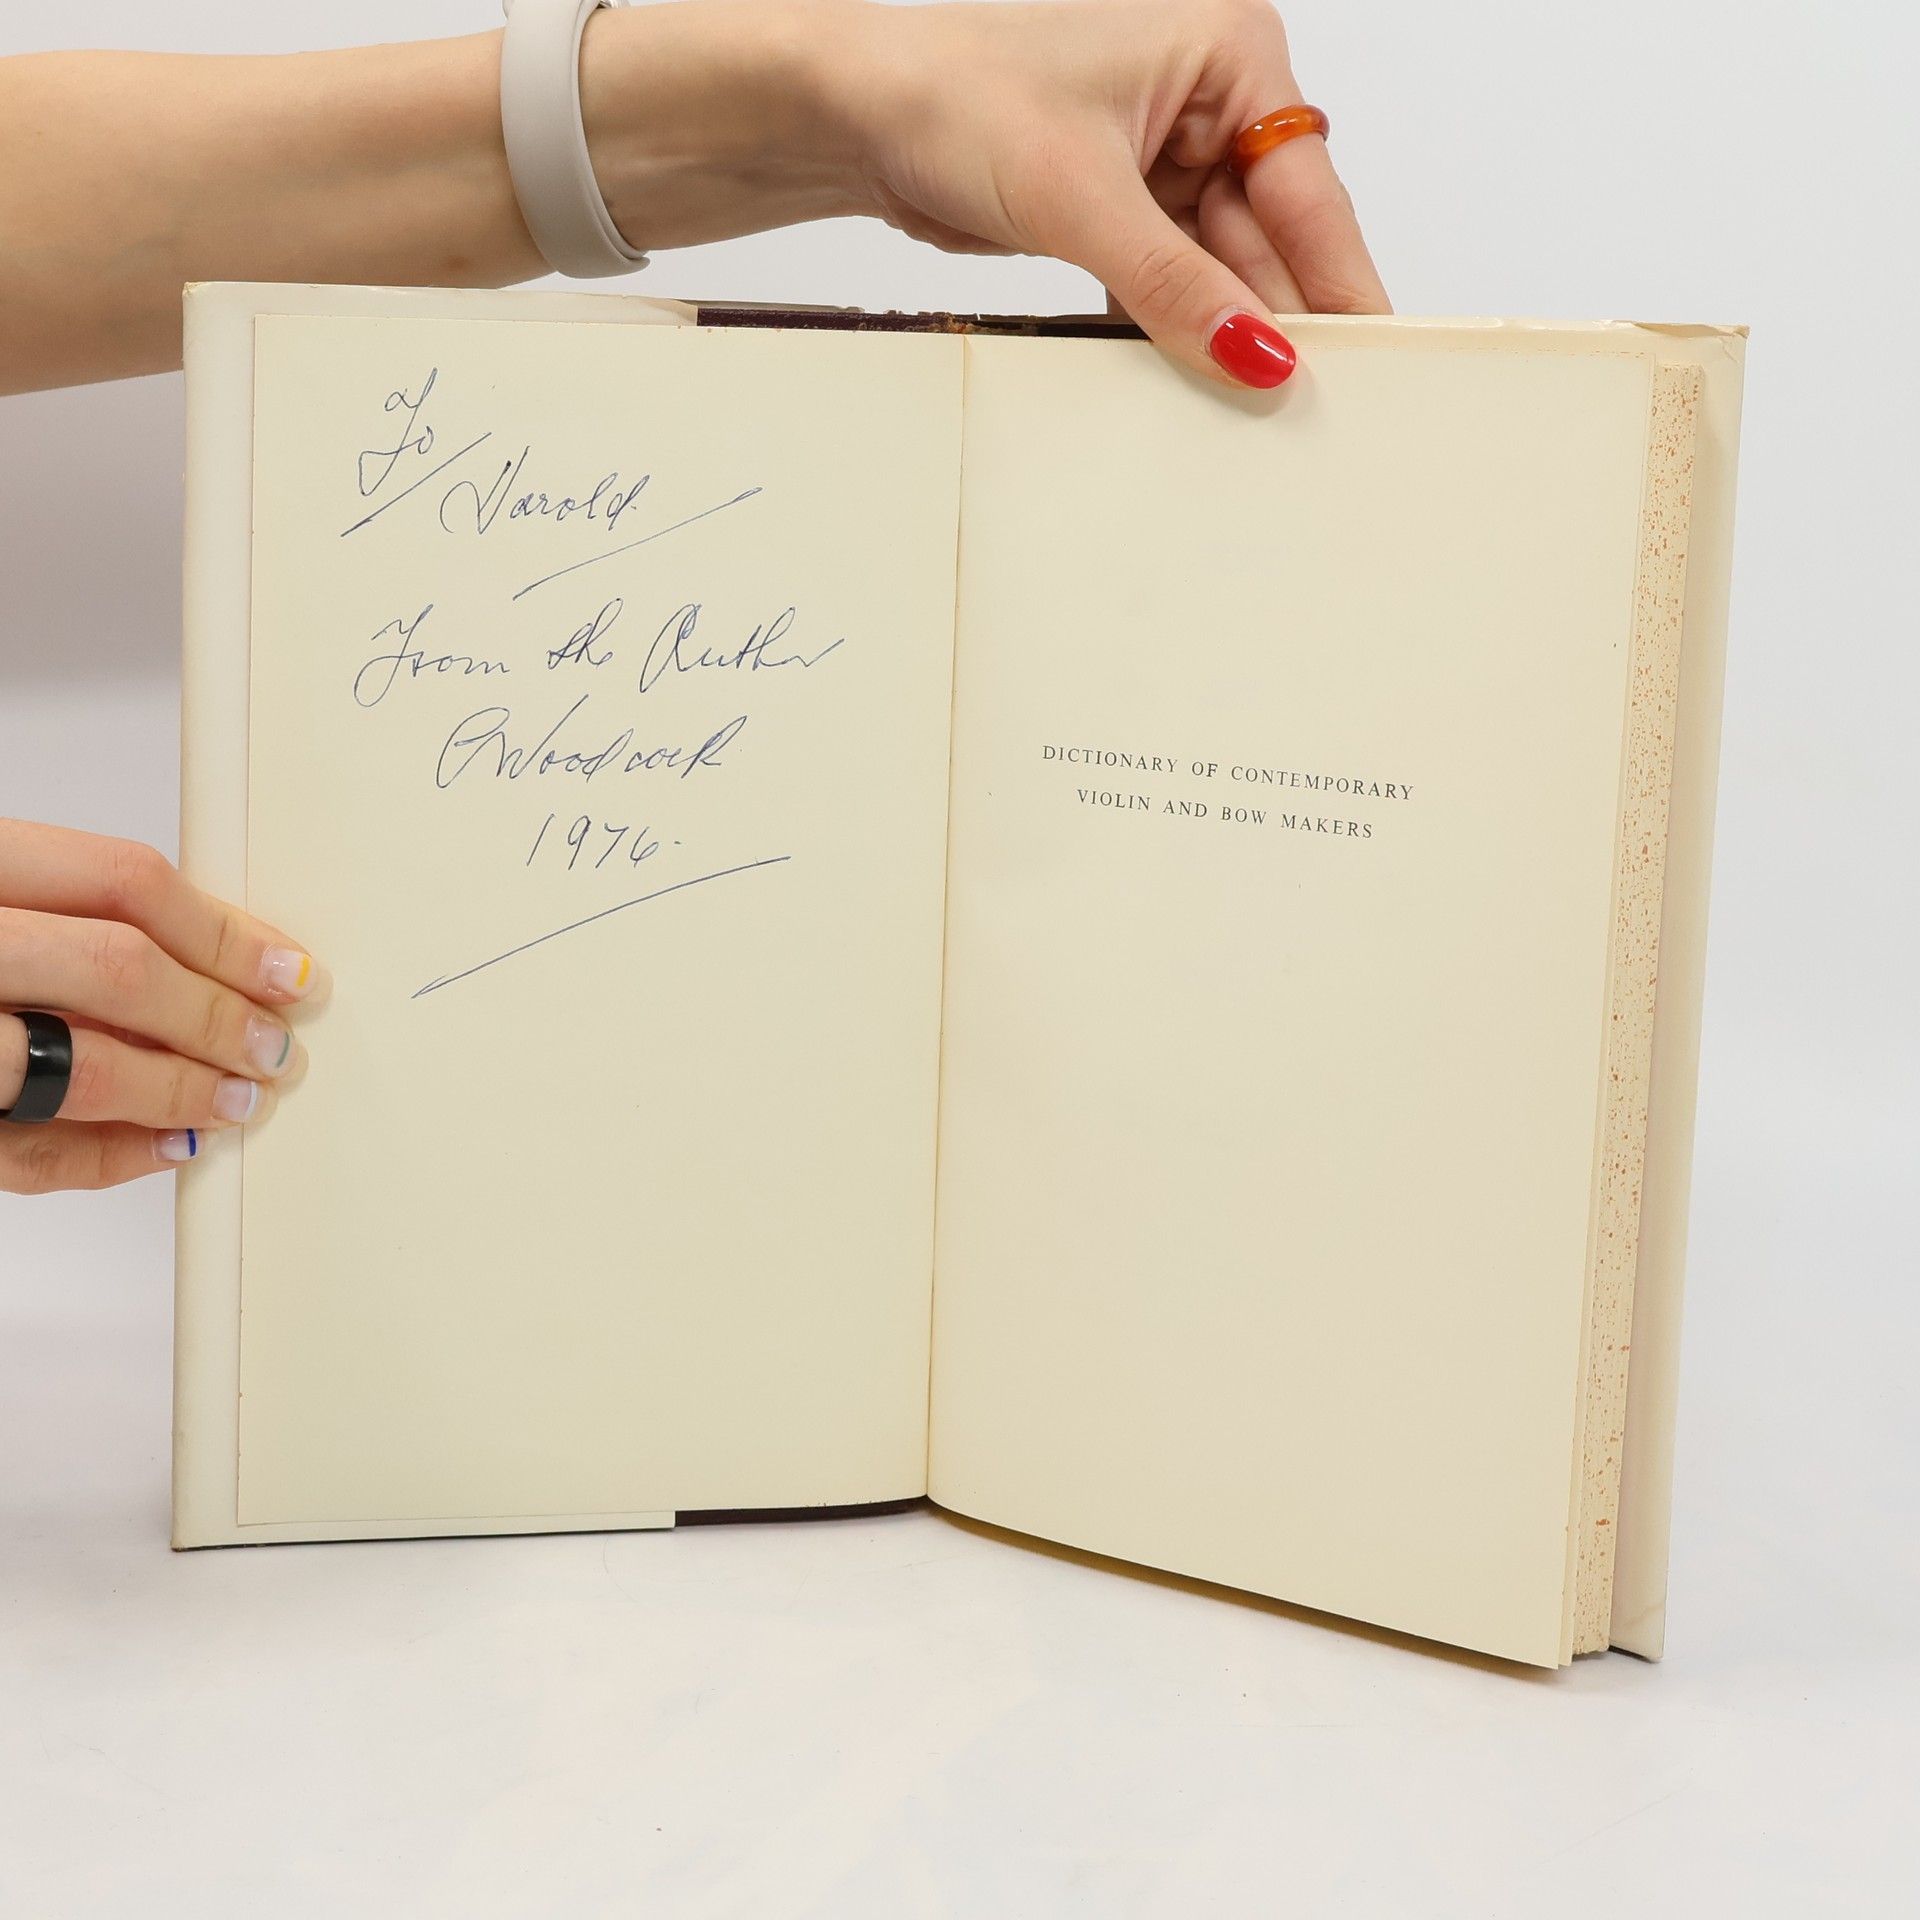 To
Harold.
From the Author
CWoodcock
1976.
DICTIONARY OF CONTEMPORARY
VIOLIN AND BOW MAKERS